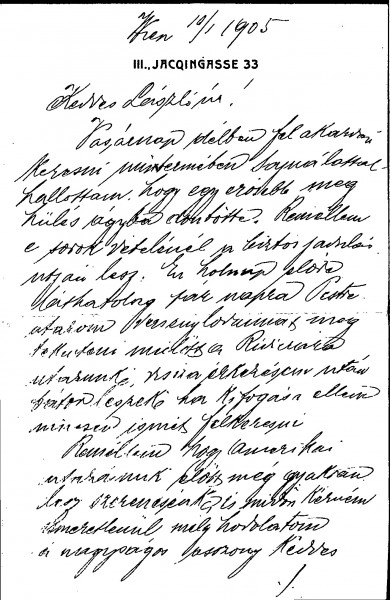 Wien 10/1 1905
III., JACQINGASSE 33
Kedves László úr!
Vasárnap délben fel akartam
keresni műtermében sajnálattal
hallottam, hogy egy erősebb meg
hülés ágyba döntötte. Remélem
e sorok vételénél a biztos javulás
utján lesz. Én holnap előre
láthatólag pár napra Pestre
utazom versenylovaimat meg
tekinteni mielőtt a Rivierára
utazunk, visszaérkezésem után
bátor leszek ha kifogása ellene
nincsen ismét felkeresni
Remélem hogy Amerikai
utazásunk előtt még gyakran
lesz szerencsénk, és mint kérném
ismeretlenül mély hódolatom
a nagyságos asszony kedves
./.